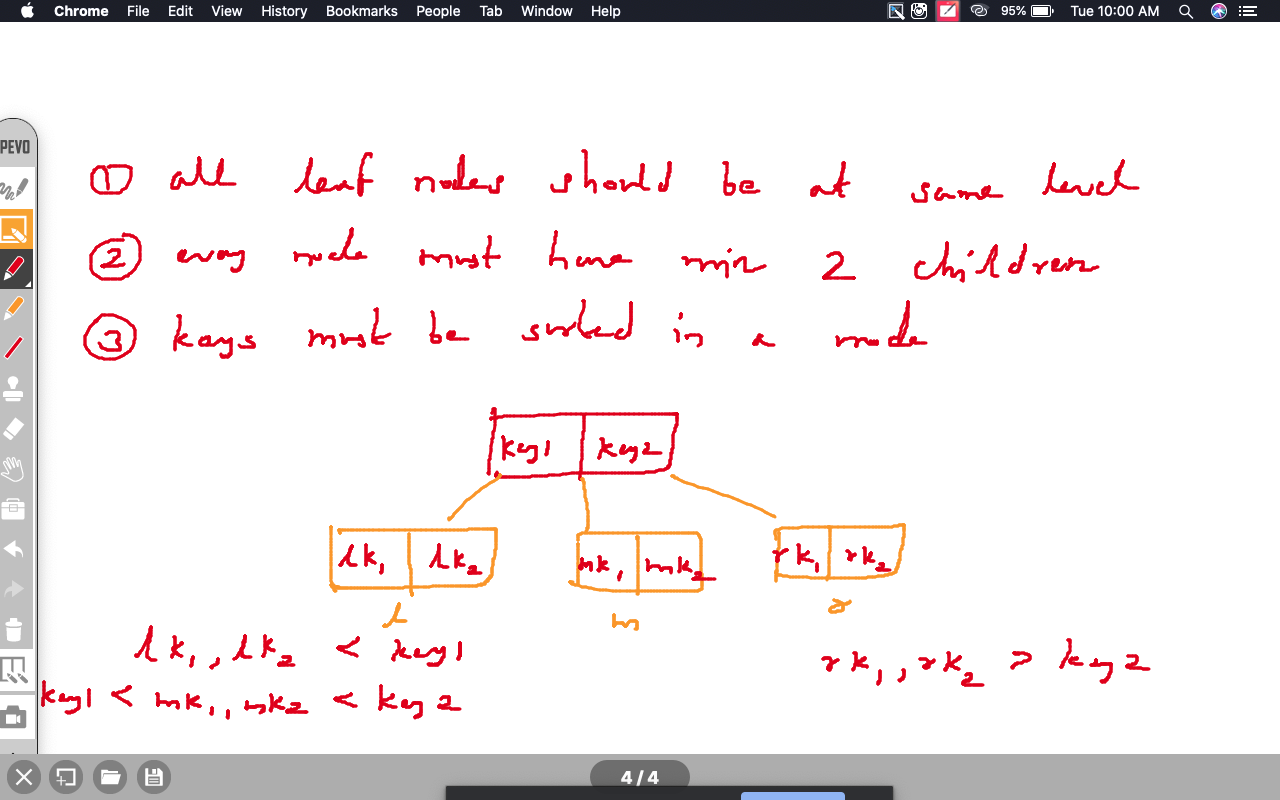 Chrome File Edit View History Bookmarks People Tab Window Help 95% Tue 10:00 AM
PEVO
① all leaf nodes should be at same level
② every node must have min 2 children
③ keys must be sorted in a node
key1 key2
lk₁ lk₂ mk₁ mk₂ rk₁ rk₂
l m r
lk₁, lk₂ < key1 rk₁, rk₂ > key2
key1 < mk₁, mk₂ < key2
4 / 4